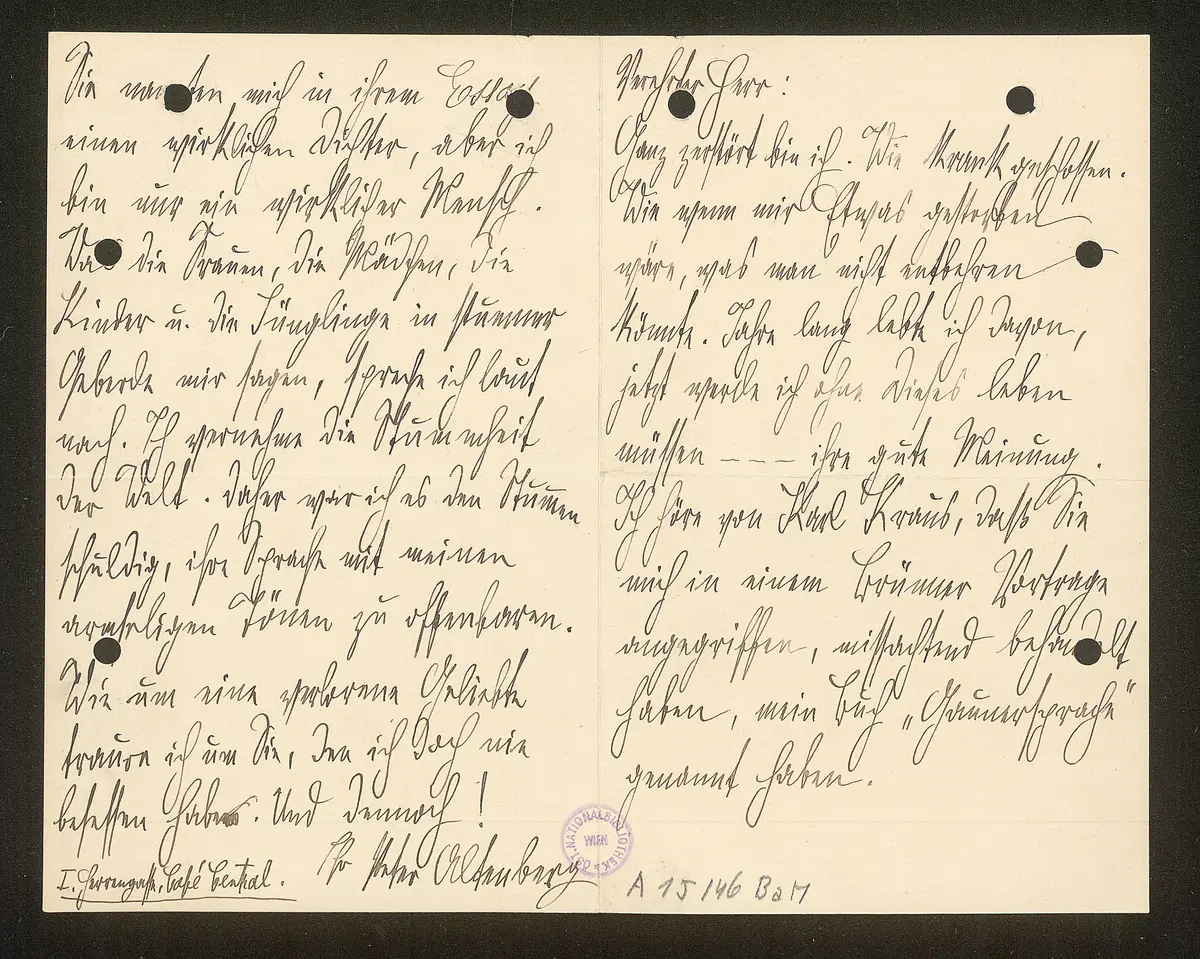 Verehrter Herr:
Ganz zerstört bin ich. Wie krank geschossen.
Wie wenn mir Etwas gestorben
wäre, was man nicht entbehren
könnte. Jahre lang lebte ich davon,
jetzt werde ich ohne dieses leben
müssen - - - ihre gute Meinung.
Ich höre von Karl Kraus, dass Sie
mich in einem Brünner Vortrage
angegriffen, missachtend behandelt
haben, mein Buch „Gaunersprache"
genannt haben.
Sie nannten mich in ihrem Essay
einen wirklichen Dichter, aber ich
bin nur ein wirklicher Mensch.
Was die Frauen, die Mädchen, die
Kinder u. die Jünglinge in stummer
Geberde mir sagen, spreche ich laut
nach. Ich vernehme die Stummheit
der Welt. Daher war ich es den Stummen
schuldig, ihre Sprache mit meinen
armseligen Tönen zu offenbaren.
Wie um eine verlorene Geliebte
traure ich um Sie, den ich doch nie
besessen habe. Und dennoch!
Ihr Peter Altenberg
I. Herrengasse, Café Central.
ÖST. NATIONALBIBLIOTHEK WIEN
A 15/146 BaM